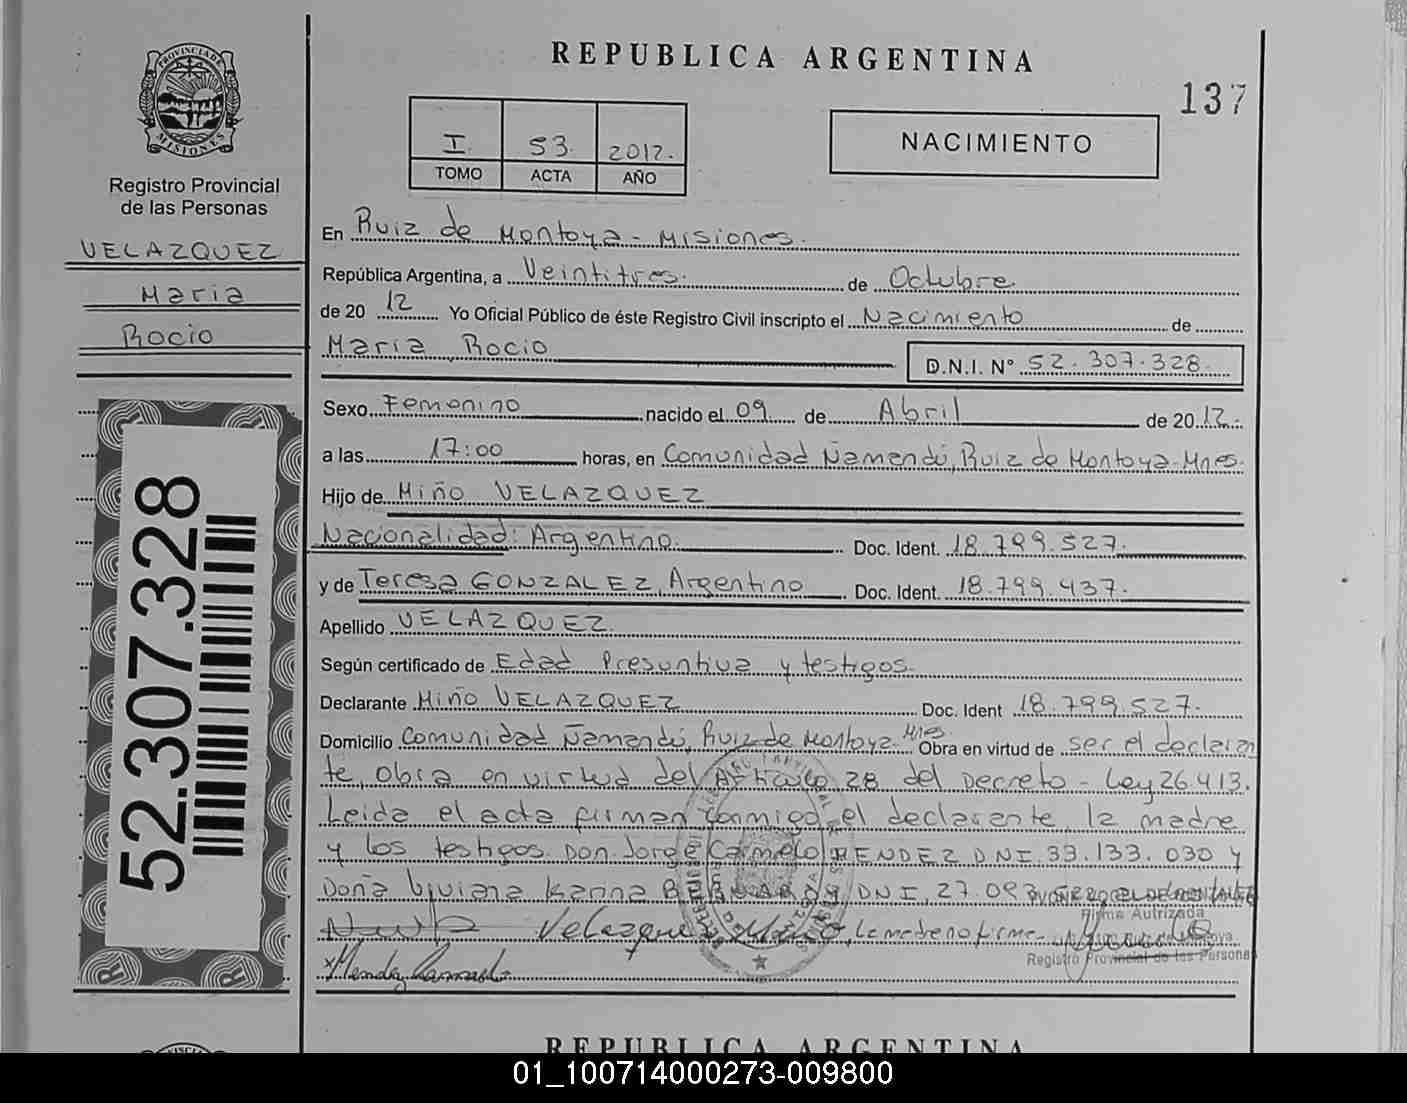 PROVINCIA DE
MISIONES
Registro Provincial
de las Personas
VELAZQUEZ
Maria
Rocio
52.307.328
REPUBLICA ARGENTINA
137
I. 53. 2012.
TOMO ACTA AÑO
NACIMIENTO
En Ruiz de Montoya - Misiones.
República Argentina, a Veintitres. de Octubre
de 20 12 Yo Oficial Público de éste Registro Civil inscripto el Nacimiento de
Maria Rocio D.N.I. Nº 52.307.328.
Sexo Femenino nacido el 09 de Abril de 20 12.
a las 17:00 horas, en Comunidad Ñamandú, Ruiz de Montoya-Mnes.
Hijo de Miño VELAZQUEZ
Nacionalidad: Argentino. Doc. Ident. 18.799.527.
y de Teresa GONZALEZ, Argentino Doc. Ident. 18.799.437.
Apellido VELAZQUEZ
Según certificado de Edad Presuntiva y testigos.
Declarante Miño VELAZQUEZ Doc. Ident 18.799.527.
Domicilio Comunidad Ñamandú, Ruiz de Montoya Mnes. Obra en virtud de ser el declaran
te, obra en virtud del Articulo 28 del Decreto - Ley 26.413.
Leida el acta firman conmigo el declarante, la madre
y los testigos. Don Jorge Carmelo MENDEZ DNI. 33.133.030 y
Doña Viviana Karina DNI. 27.093
Firma Autrizada
Velazquez Miño, la madre no firma.
Registro Provincial de las Personas
Mendez
REPUBLICA ARGENTINA
01_100714000273-009800